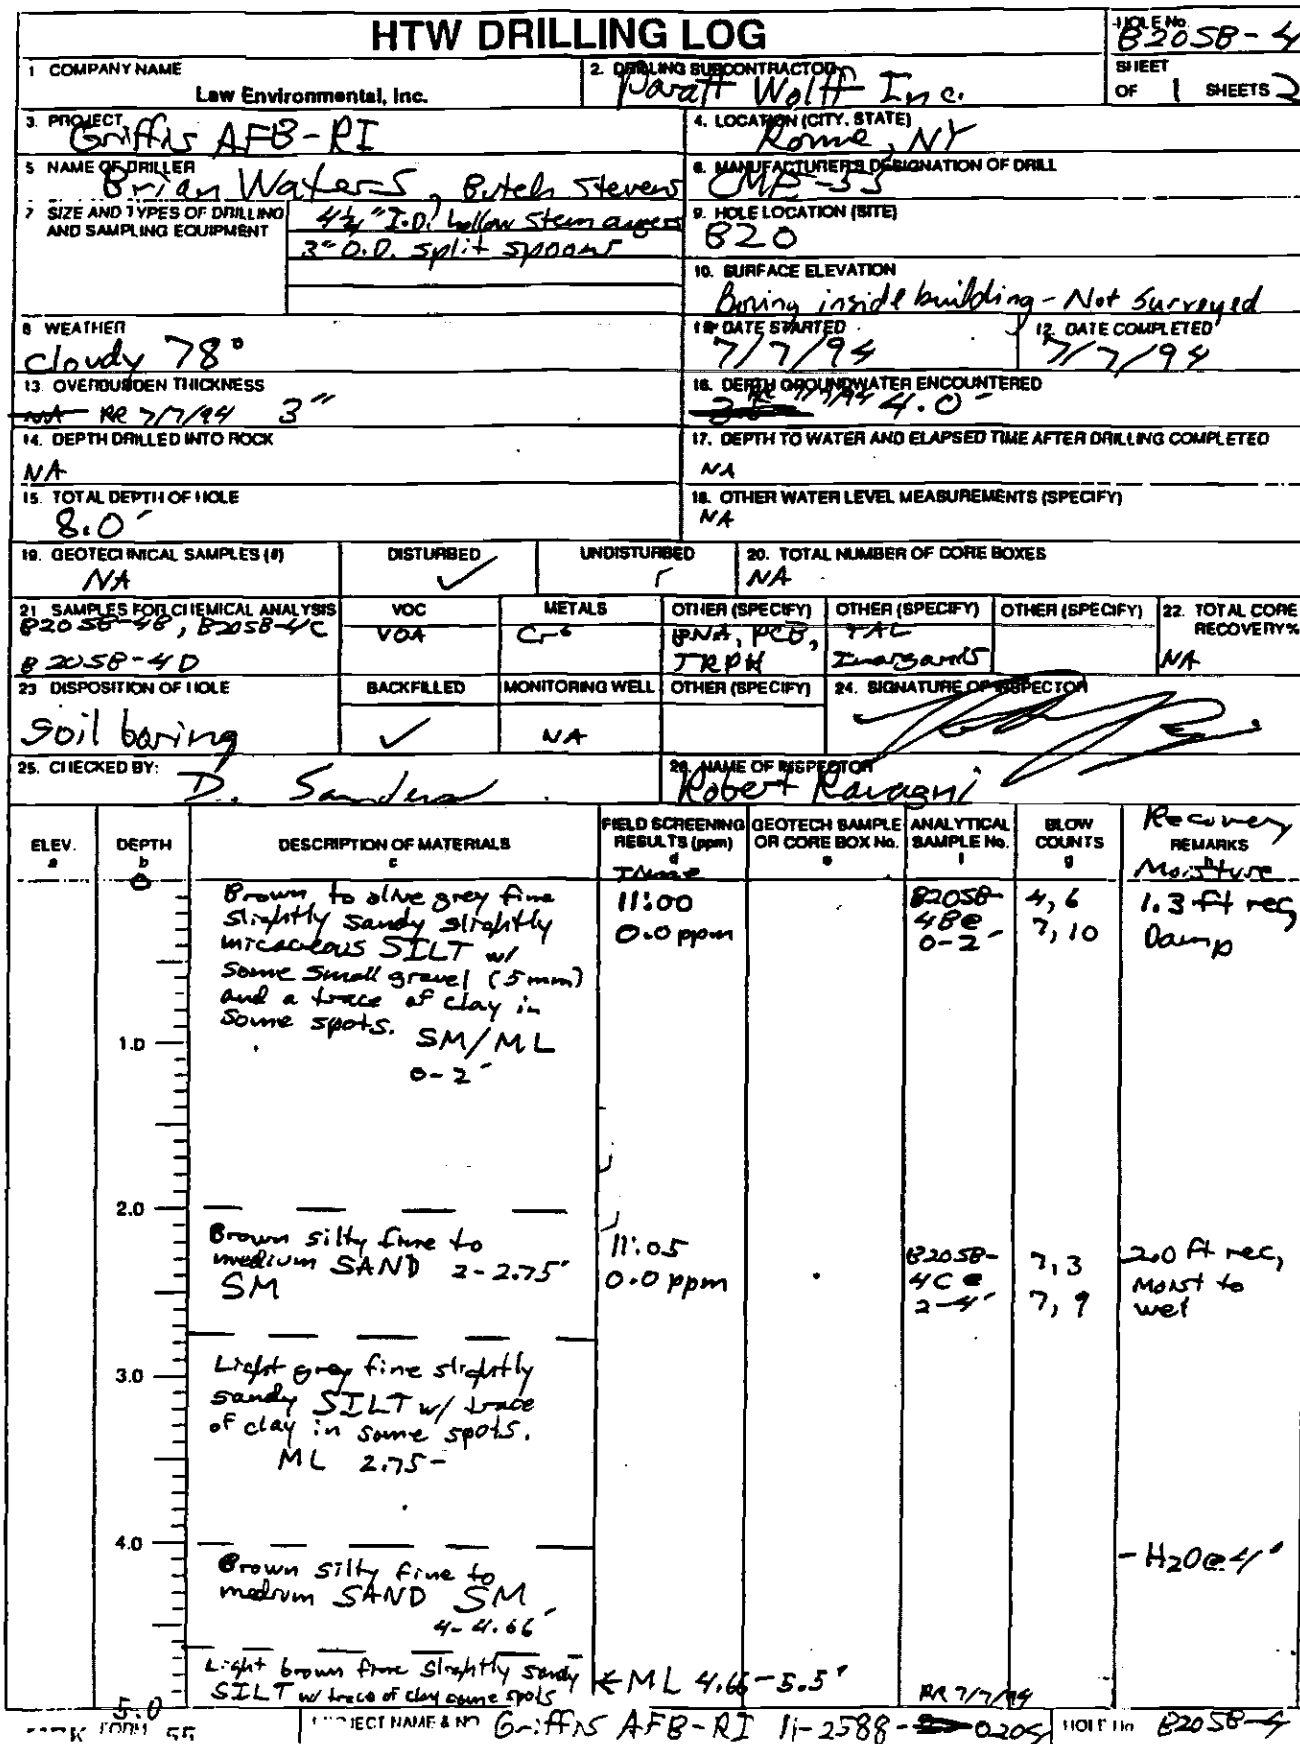 HTW DRILLING LOG
HOLE No.
B20SB-4
1 COMPANY NAME
Law Environmental, Inc.
2. DRILLING SUBCONTRACTOR
Paratt Wolff Inc.
SHEET 1
OF SHEETS 2
3. PROJECT
Griffis AFB-RI
4. LOCATION (CITY, STATE)
Rome, NY
5 NAME OF DRILLER
Brian Waters, Butch Stevens
6. MANUFACTURER'S DESIGNATION OF DRILL
CME-55
7 SIZE AND TYPES OF DRILLING
AND SAMPLING EQUIPMENT
4¼" I.D. hollow stem augers
3" O.D. split spoons
9. HOLE LOCATION (SITE)
B20
10. SURFACE ELEVATION
Boring inside building - Not surveyed
8 WEATHER
cloudy 78°
DATE STARTED
7/7/94
12. DATE COMPLETED
7/7/94
13. OVERBURDEN THICKNESS
NA RR 7/7/94 3"
16. DEPTH GROUNDWATER ENCOUNTERED
RR 7/7/94 4.0'
14. DEPTH DRILLED INTO ROCK
NA
17. DEPTH TO WATER AND ELAPSED TIME AFTER DRILLING COMPLETED
NA
15. TOTAL DEPTH OF HOLE
8.0'
18. OTHER WATER LEVEL MEASUREMENTS (SPECIFY)
NA
19. GEOTECHNICAL SAMPLES (#)
NA
DISTURBED
✓
UNDISTURBED
20. TOTAL NUMBER OF CORE BOXES
NA
21 SAMPLES FOR CHEMICAL ANALYSIS
B20SB-4B, B20SB-4C
B20SB-4D
VOC
VOA
METALS
Cr⁶
OTHER (SPECIFY)
BNA, PCB,
TRPH
OTHER (SPECIFY)
TAL
Inorganics
OTHER (SPECIFY)
22. TOTAL CORE
RECOVERY %
NA
23 DISPOSITION OF HOLE
Soil boring
BACKFILLED
✓
MONITORING WELL
NA
OTHER (SPECIFY)
24. SIGNATURE OF INSPECTOR
25. CHECKED BY:
D. Sanders
26. NAME OF INSPECTOR
Robert Ravagni
ELEV.
a
DEPTH
b
DESCRIPTION OF MATERIALS
c
FIELD SCREENING
RESULTS (ppm)
d
Time
GEOTECH SAMPLE
OR CORE BOX No.
e
ANALYTICAL
SAMPLE No.
f
BLOW
COUNTS
g
Recovery
REMARKS
h
Moisture
0
Brown to olive grey fine
slightly sandy slightly
micaceous SILT w/
some small gravel (5mm)
and a trace of clay in
some spots. SM/ML
0-2'
11:00
0.0 ppm
B20SB-
4B@
0-2'
4, 6
7, 10
1.3 ft rec,
Damp
1.0
2.0
Brown silty fine to
medium SAND 2-2.75'
SM
11:05
0.0 ppm
B20SB-
4C@
2-4'
7, 3
7, 9
2.0 ft rec,
Moist to
wet
3.0
Light grey fine slightly
sandy SILT w/ trace
of clay in some spots.
ML 2.75-
4.0
Brown silty fine to
medium SAND SM
4-4.66'
-H2O@4'
Light brown fine slightly sandy
SILT w/ trace of clay some spots
← ML 4.66-5.5'
RR 7/7/94
5.0
FORM 55
PROJECT NAME & NO Griffis AFB-RI 11-2588-0204
HOLE No B20SB-4